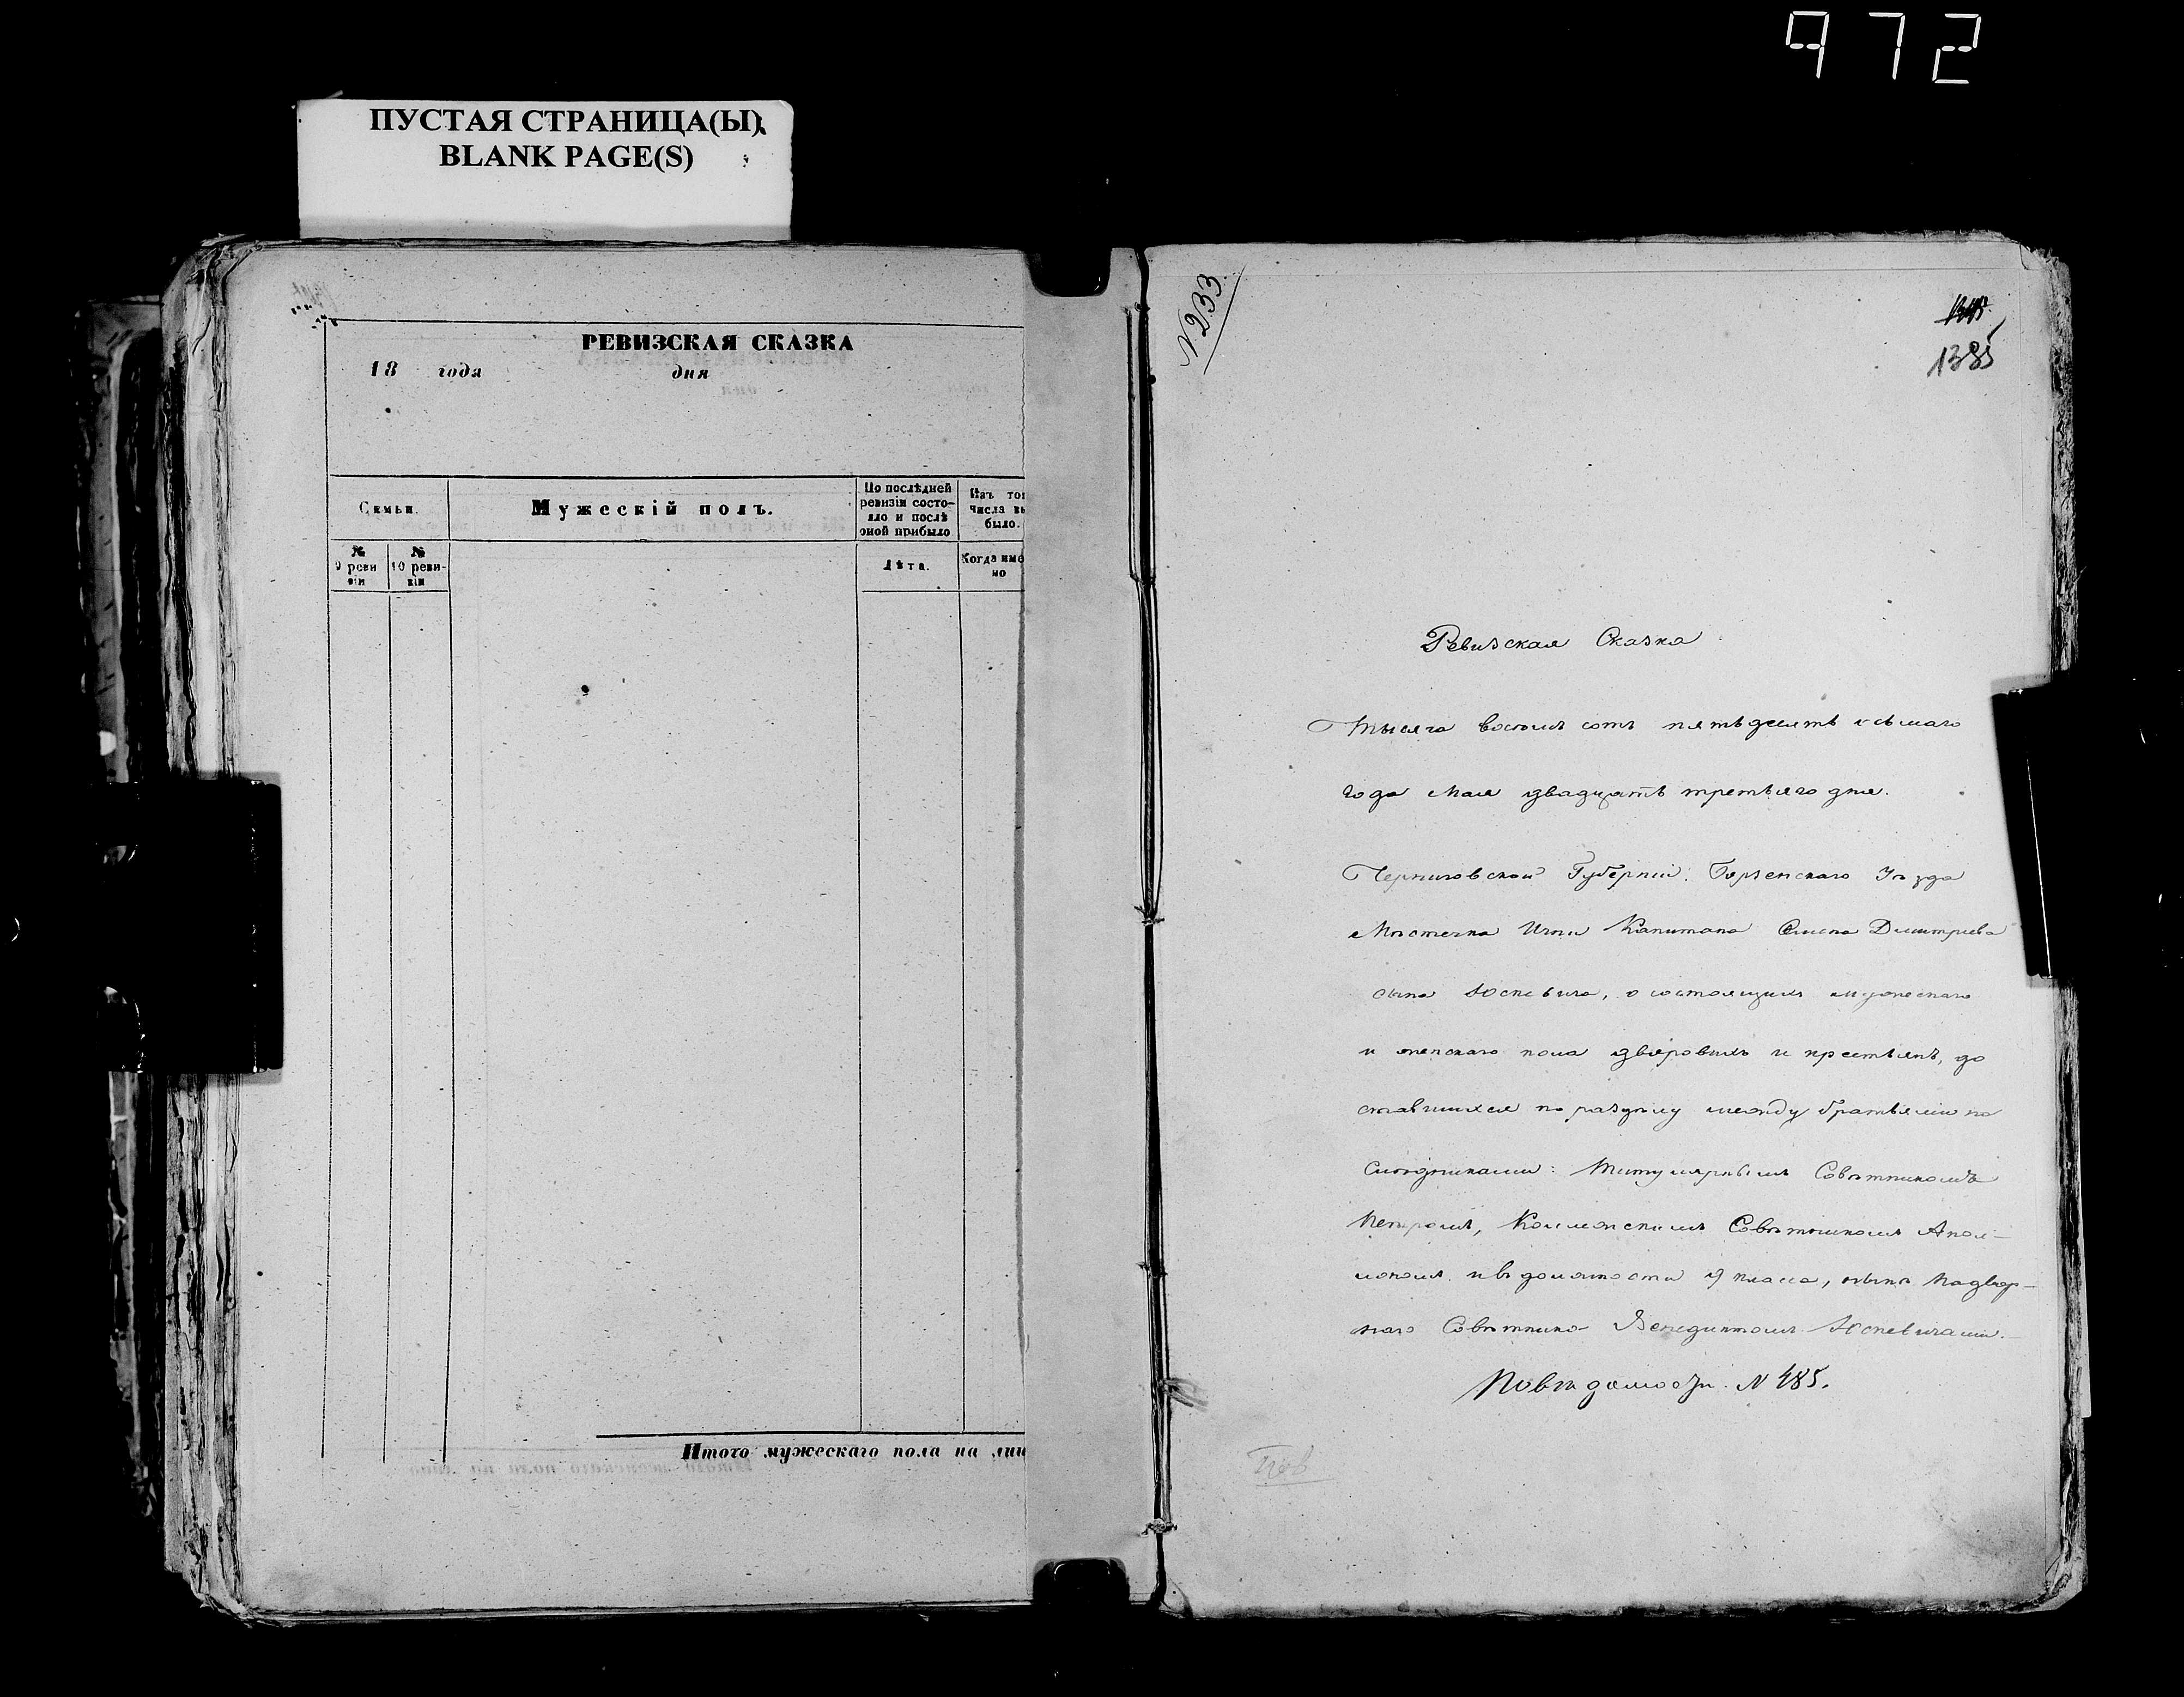 972
ПУСТАЯ СТРАНИЦА(Ы)
BLANK PAGE(S)
РЕВИЗСКАЯ СКАЗКА
18 года дня
Семьи.
Мужескій полъ.
По послѣдней ревизіи состо-
яло и послѣ оной прибыло
Изъ то
числа вы
было.
№ 9 реви зіи
№ 10 реви- зіи
Лѣта.
Когда име
но
Итого мужескаго пола на ли
N 233
1385
Ревизская Сказка
Тысяча восемь сотъ пятьдесятъ осьмаго
года Мая двадцать третьяго дня.
Черниговской Губерніи. Борзенскаго Уѣзда
Мѣстечка Ични Капитана Дмитріева
сына Юскевича, о состоящихъ мужескаго
и женскаго пола дворовыхъ и крестьянъ, до
ставшихся по раздѣлу между братьями на
слѣдниками: Титулярнымъ Совѣтникомъ
Петромъ, Коллежскимъ Совѣтникомъ Апол-
лономъ и въ должности класса, нынѣ Надвор-
наго Совѣтника Венедиктомъ Юскевичами.
По вѣдомости N 485.